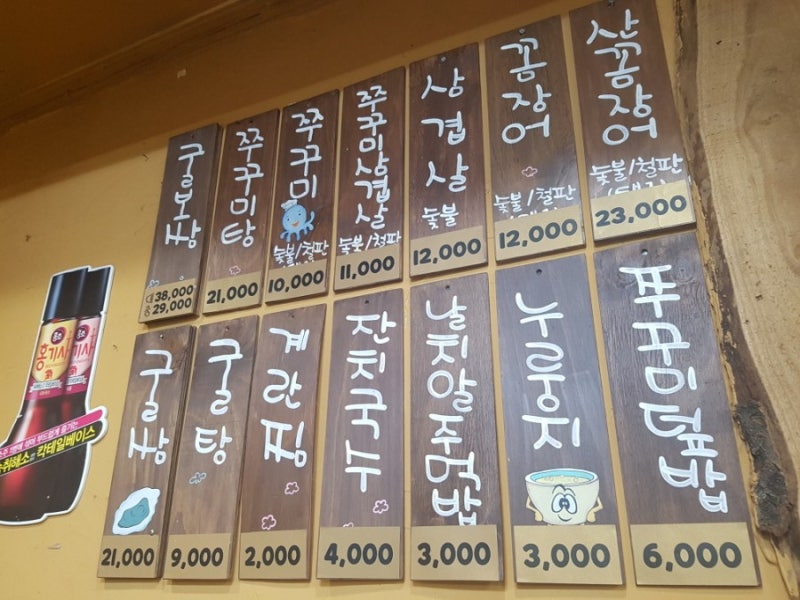 굴보쌈
대 38,000
중 29,000
쭈꾸미탕
21,000
쭈꾸미
숯불/철판
10,000
쭈꾸미삼겹살
숯불/철판
11,000
삼겹살
숯불
12,000
꼼장어
숯불/철판
12,000
산꼼장어
숯불/철판
23,000
홍기사
칵테일베이스
굴쌈
21,000
굴탕
9,000
계란찜
2,000
잔치국수
4,000
날치알주먹밥
3,000
누룽지
3,000
쭈꾸미덮밥
6,000